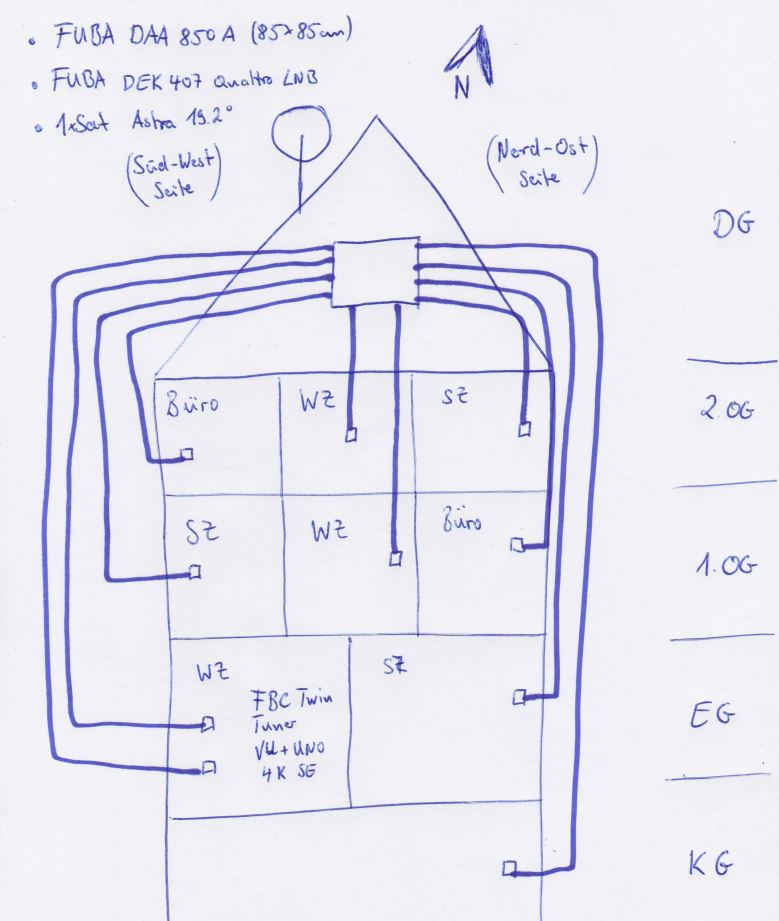 • FUBA DAA 850 A (85x85cm)
• FUBA DEK 407 Quattro LNB
• 1xSat Astra 19.2°
N
(Süd-West Seite)
(Nord-Ost Seite)
DG
Büro
WZ
SZ
2.OG
SZ
WZ
Büro
1.OG
WZ
SZ
FBC Twin
Tuner
VU+UNO
4K SE
EG
KG